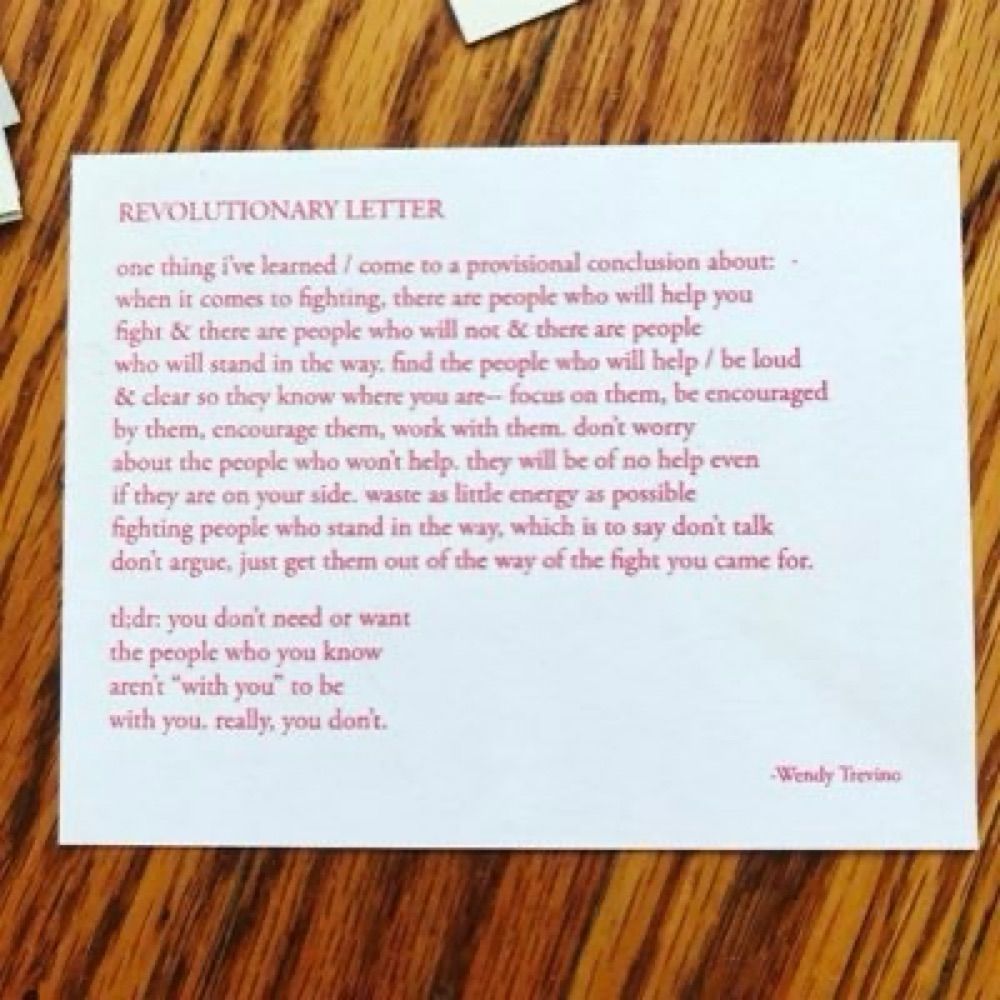 REVOLUTIONARY LETTER
one thing i've learned / come to a provisional conclusion about:
when it comes to fighting, there are people who will help you
fight & there are people who will not & there are people
who will stand in the way. find the people who will help / be loud
& clear so they know where you are-- focus on them, be encouraged
by them, encourage them, work with them. don't worry
about the people who won't help. they will be of no help even
if they are on your side. waste as little energy as possible
fighting people who stand in the way, which is to say don't talk
don't argue, just get them out of the way of the fight you came for.
tl;dr: you don't need or want
the people who you know
aren't “with you” to be
with you. really, you don't.
-Wendy Trevino